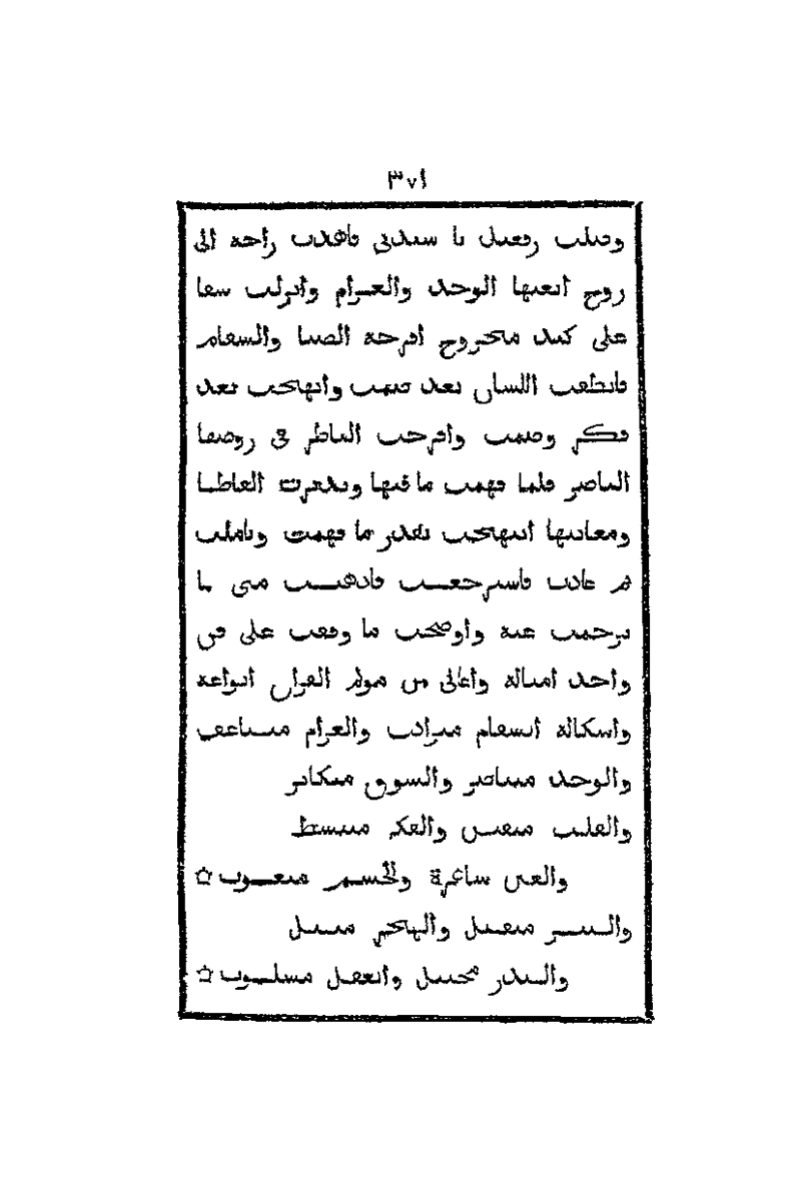 ٣٧١
وصلت رقعتك يا سيدتي فاهدت راحة الى
روح اتعبها الوجد والغرام وانزلت شفا
على كبد مجروح اقرحه الضنا والسقام
فانطقت اللسان بعد صمت وابتهجت بعد
فكر وصمت وافرحت الناظر في روضها
الناضر فلما فهمت ما فيها وتدبرت الفاظها
ومعانيها ابتهجت بقدر ما فهمت وتاملت
ثم عادت فاسترجعت فاذهبت مني ما
ترجمت عنه واوضحت ما وقعت على فن
واحد امثاله واعاني من مولم الفراق انواعه
واشكاله السقام مترادف والغرام متضاعف
والوجد والشوق متكاثر
والقلب منقبض والفكر منبسط
والعين ساهرة والجسم متعوب ☆
والصبر منفصل والهجر متصل
والعقل مسلوب ☆